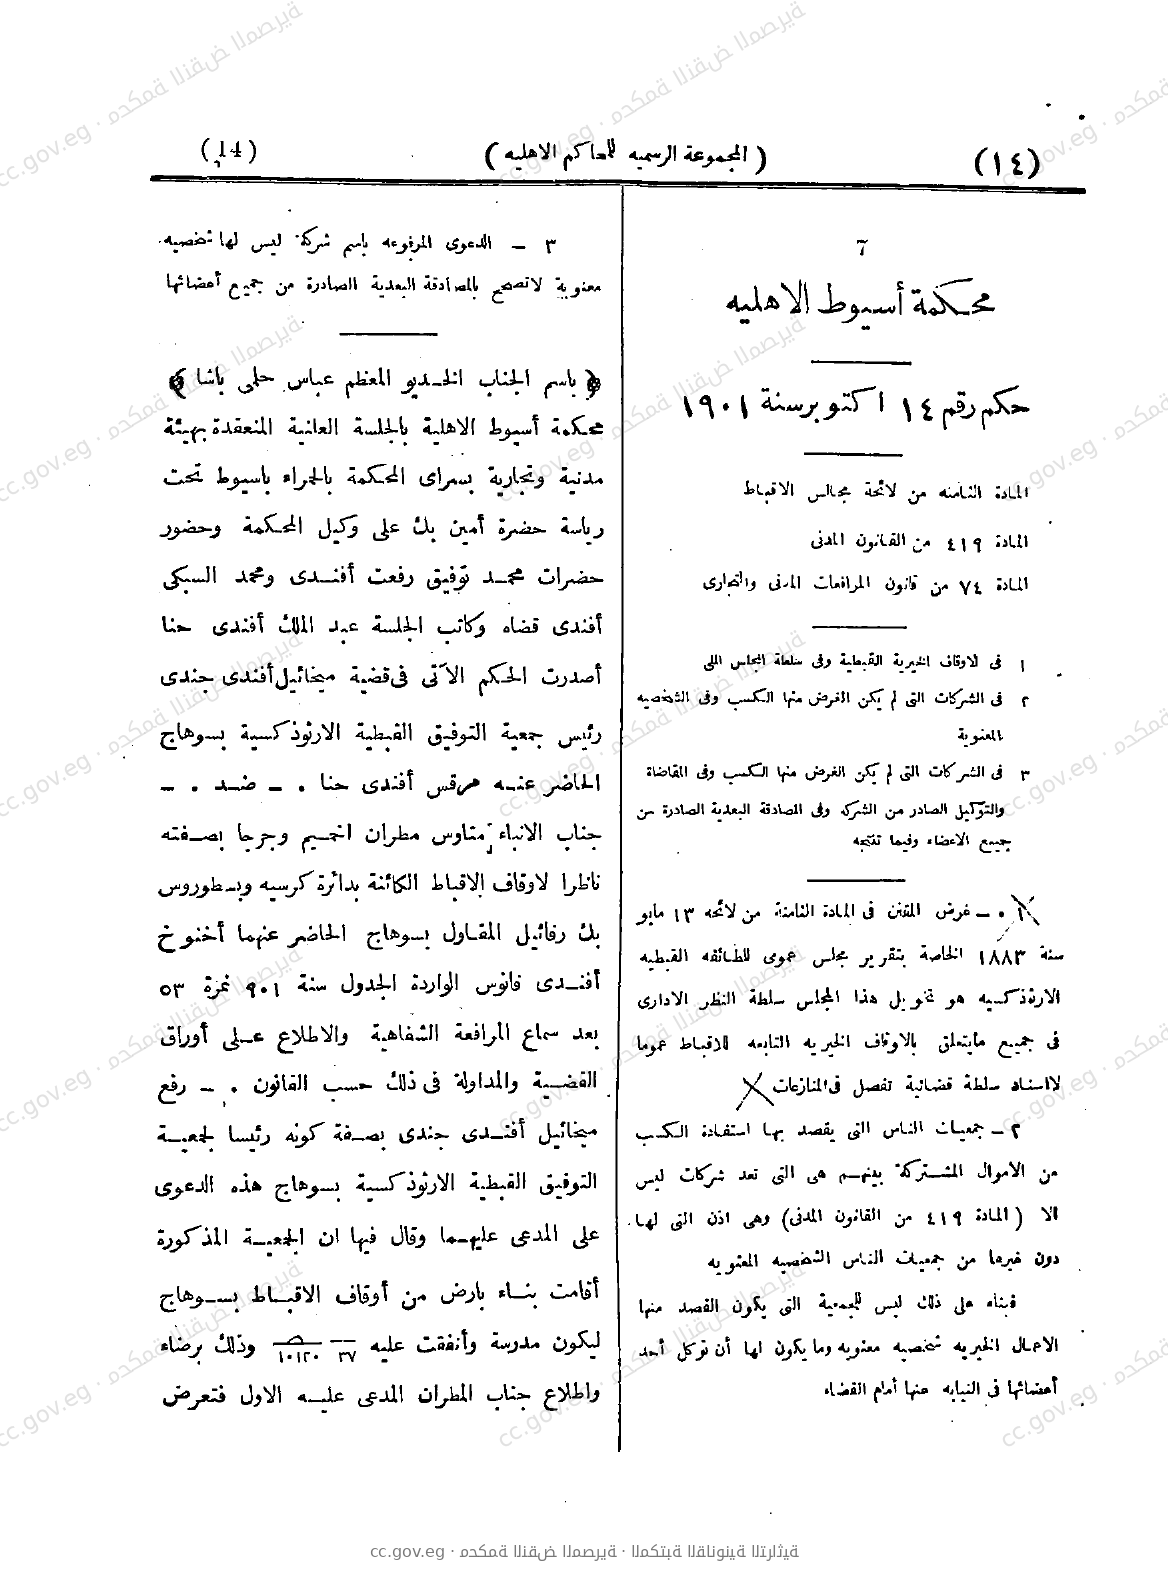 (١٤)
( المجموعة الرسميه للمحاكم الاهليه )
(14)
٦
محكمة أسيوط الاهليه
حكم رقم ١٤ اكتوبر سنة ١٩٠١
المادة الثامنه من لائحة مجالس الاقباط
المادة ٤١٩ من القانون المدنى
المادة ٧٤ من قانون المرافعات المدنى والتجارى
١ فى الاوقاف الخيرية القبطية وفى سلطة المجلس الملى
٢ فى الشركات التى لم يكن الغرض منها الكسب وفى الشخصيه
المعنوية
٣ فى الشركات التى لم يكن الغرض منها الكسب وفى المقاضاة
والتوكيل الصادر من الشركه وفى المصادقة البعدية الصادرة من
جميع الاعضاء وفيما تنتجه
١ . ــ غرض المقنن فى المادة الثامنة من لائحه ١٣ مايو
سنة ١٨٨٣ الخاصة بتقرير مجلس عموى للطائفه القبطيه
الارثوذكسيه هو تخويل هذا المجلس سلطة النظر الادارى
فى جميع مايتعلق بالاوقاف الخيريه التابعه للاقباط عموما
لااسناد سلطة قضائية تفصل فى المنازعات
٢ ــ جمعيات الناس التى يقصد بها استفادة الكسب
من الاموال المشتركة بينهم هى التى تعد شركات ليس
الا ( المادة ٤١٩ من القانون المدنى) وهى اذن التى لها
دون غيرها من جمعيات الناس الشخصيه المعنويه
فبناء على ذلك ليس للجمعية التى يكون القصد منها
الاعمال الخيريه شخصيه معنويه وما يكون لها أن توكل أحد
أعضائها فى النيابه عنها أمام القضاء
٣ ــ الدعوى المرفوعه باسم شركة ليس لها شخصيه
معنوية لاتصحح بالمصادقة البعدية الصادرة من جميع أعضائها
﴿ باسم الجناب الخديو المعظم عباس حلمى باشا ﴾
محكمة أسيوط الاهلية بالجلسة العلنية المنعقدة بهيئة
مدنية وتجارية بسراى المحكمة بالحمراء باسيوط تحت
رياسة حضرة أمين بك على وكيل المحكمة وحضور
حضرات محمد توفيق رفعت أفندى ومحمد السبكى
أفندى قضاه وكاتب الجلسة عبد الملك أفندى حنا
أصدرت الحكم الآتى فى قضية ميخائيل أفندى جندى
رئيس جمعية التوفيق القبطية الارثوذكسية بسوهاج
الحاضر عنه مرقس أفندى حنا . ــ ضد . ــ
جناب الانباء متاوس مطران اخميم وجرجا بصفته
ناظرا لاوقاف الاقباط الكائنة بدائرة كرسيه وبسطوروس
بك رفائيل المقاول بسوهاج الحاضر عنهما أخنوخ
أفندى فانوس الواردة الجدول سنة ٩٠١ نمرة ٥٣
بعد سماع المرافعة الشفاهية والاطلاع على أوراق
القضية والمداولة فى ذلك حسب القانون . ــ رفع
ميخائيل أفندى جندى بصفة كونه رئيسا لجمعية
التوفيق القبطية الارثوذكسية بسوهاج هذه الدعوى
على المدعى عليهما وقال فيها ان الجمعية المذكورة
أقامت بناء بارض من أوقاف الاقباط بسوهاج
ليكون مدرسة وأنفقت عليه ٣٧ ١٠١٢٠ وذلك برضاء
واطلاع جناب المطران المدعى عليه الاول فتعرض
cc.gov.eg · محكمة النقض المصرية · المكتبة القانونية التراثية